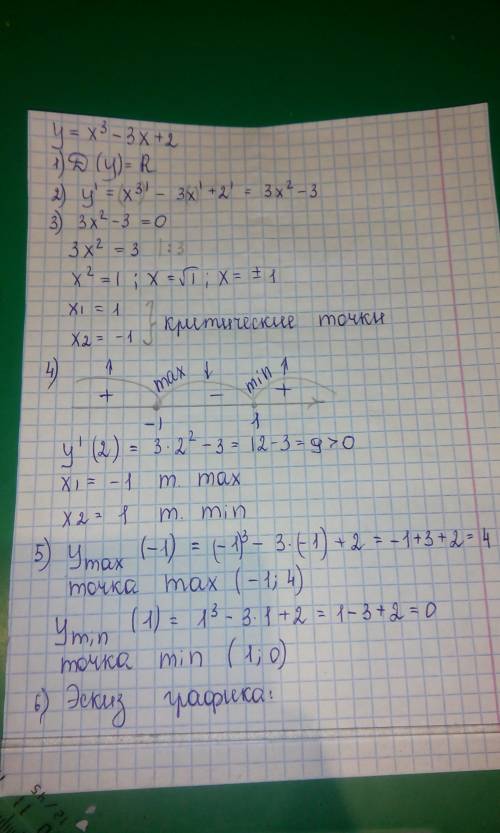 y = x³ - 3x + 2
1) D (y) = R
2) y' = (x³)' - 3x)' + 2' = 3x² - 3
3) 3x² - 3 = 0
3x² = 3 | : 3
x² = 1 ; x = √1 ; x = ± 1
x1 = 1
x2 = -1 } критические точки
4) ↑ max ↓ min ↑
+ - +
-1 1
y' (2) = 3·2² - 3 = 12 - 3 = 9 > 0
x1 = -1 т. max
x2 = 1 т. min
5) ymax (-1) = (-1)³ - 3·(-1) + 2 = -1 + 3 + 2 = 4
точка max (-1; 4)
ymin (1) = 1³ - 3·1 + 2 = 1 - 3 + 2 = 0
точка min (1; 0)
6) Эскиз графика: